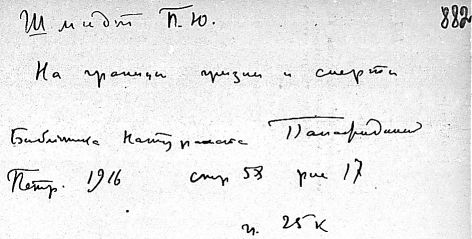 Шмидт П.Ю. 882
На границе жизни и смерти
Библиотека Натуралиста
Петр. 1916 стр 58 рис 17
ц. 25к